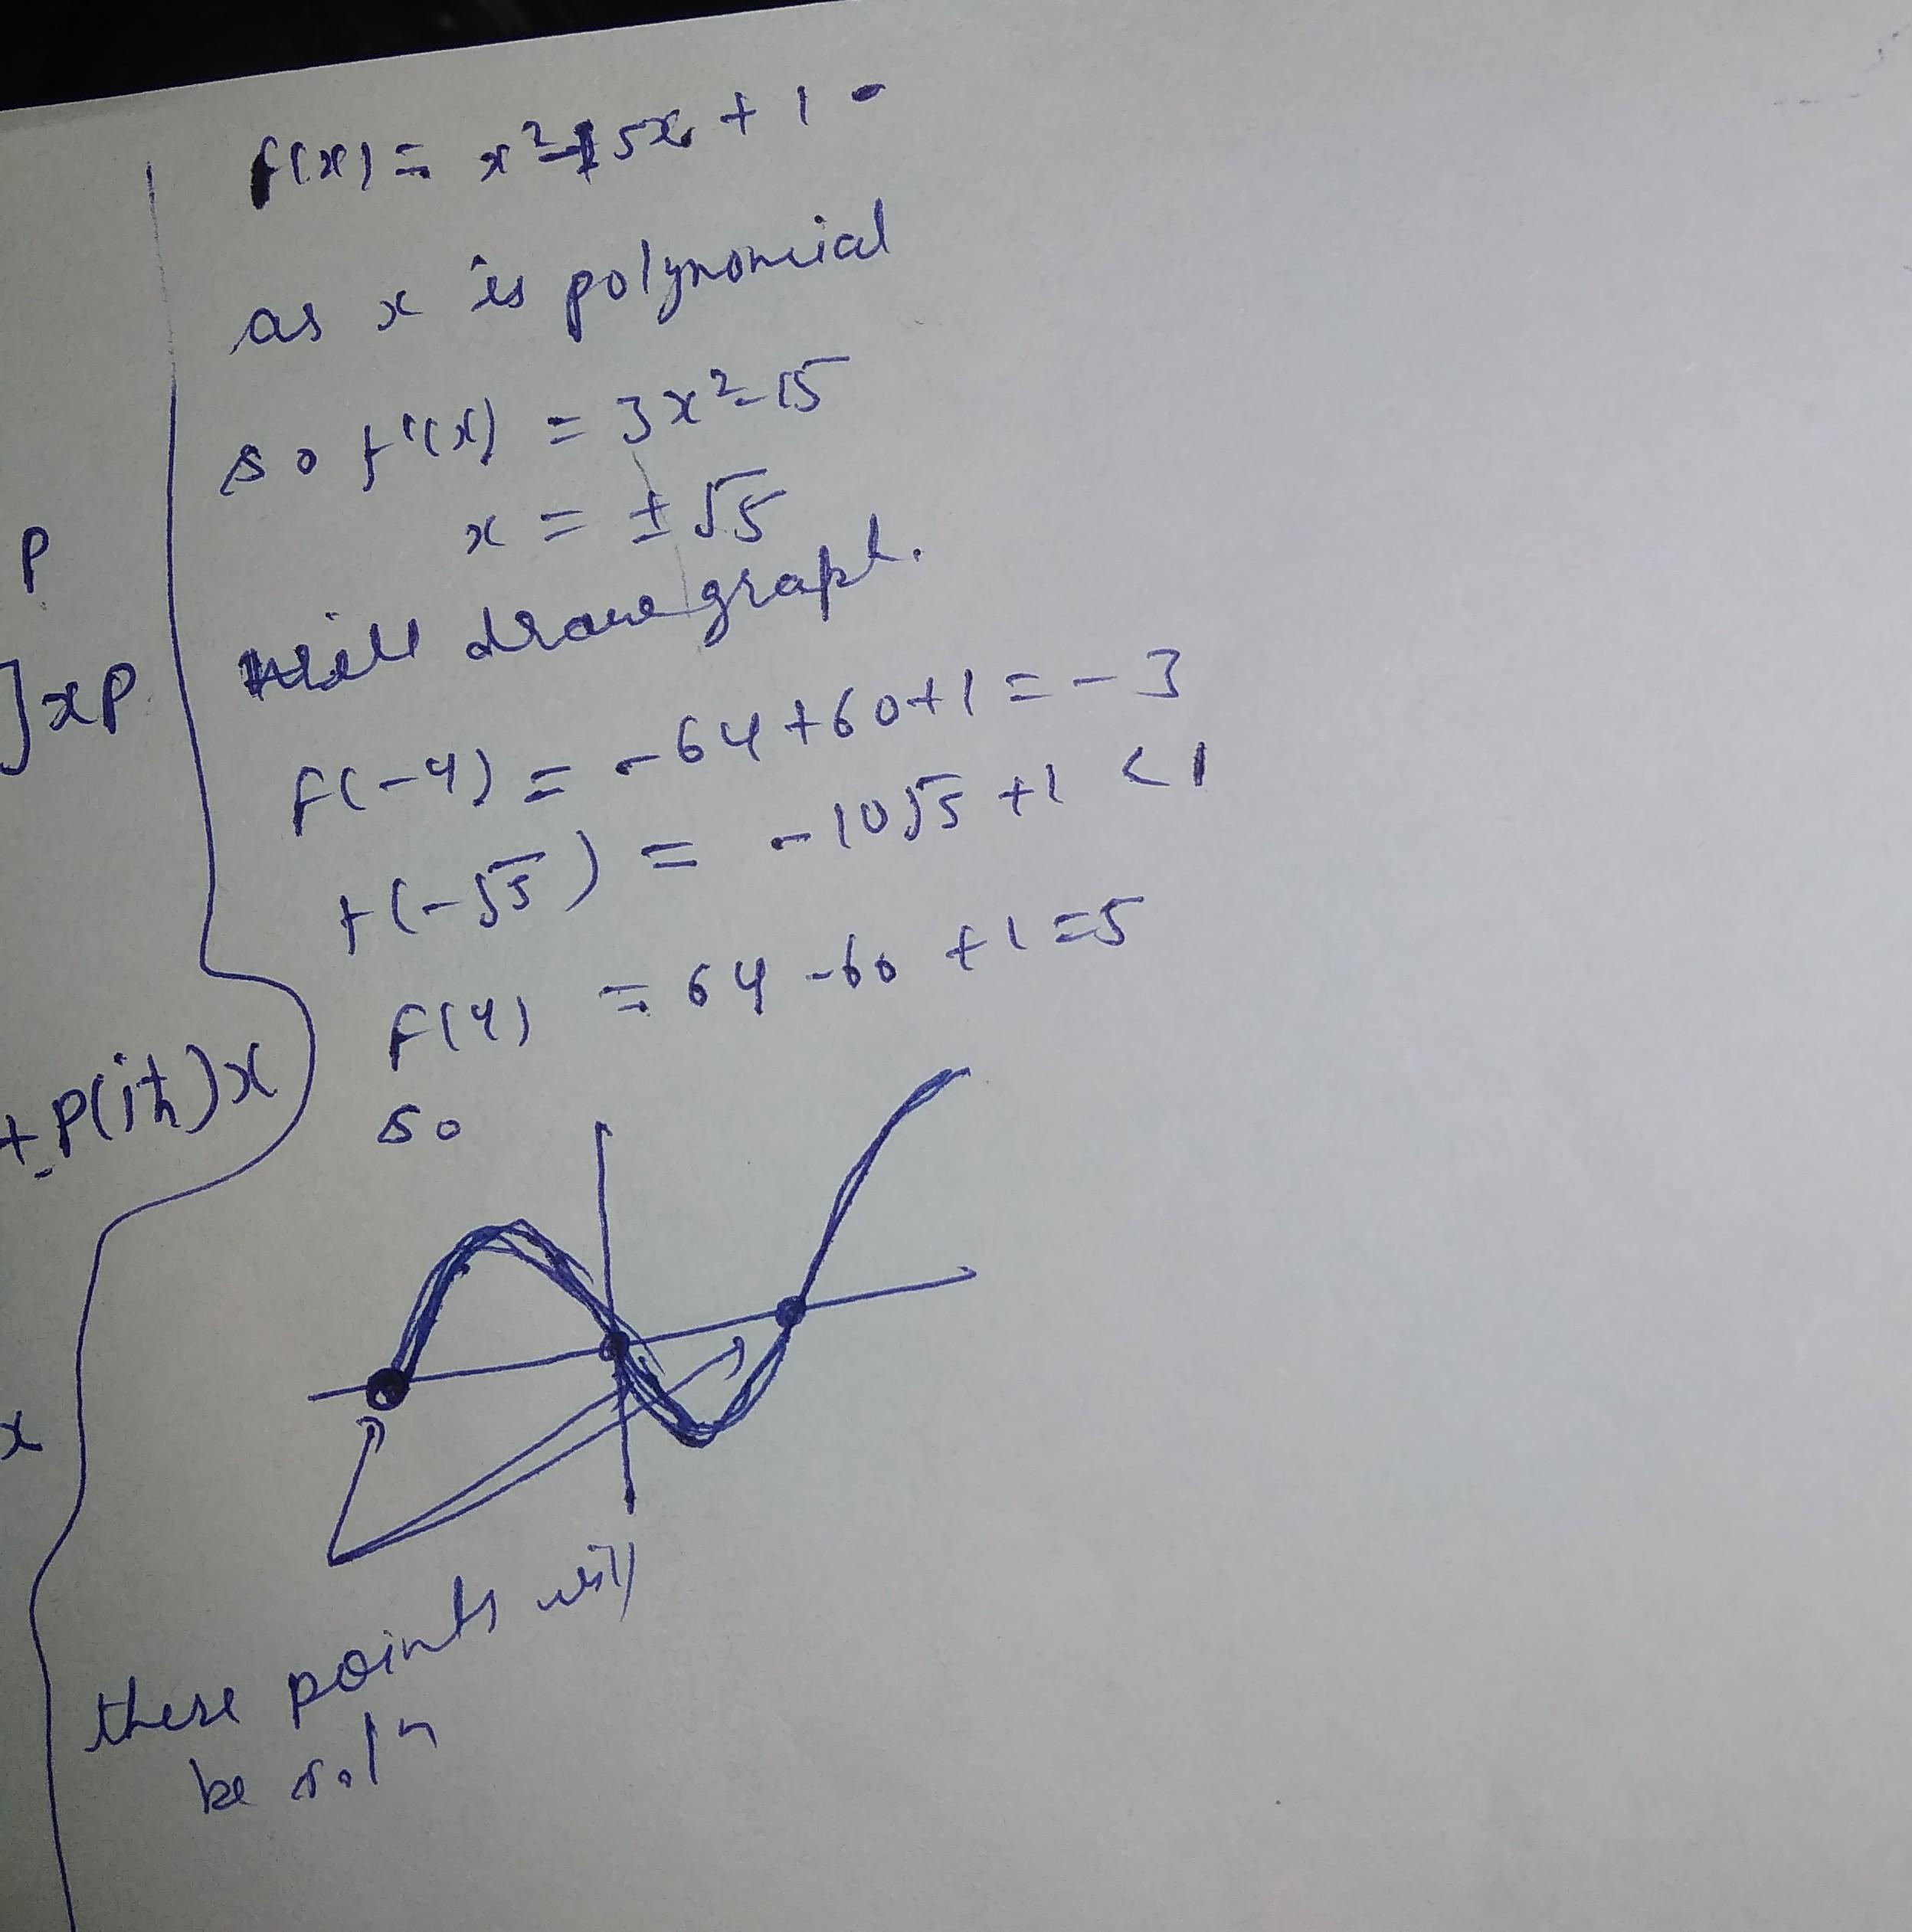 f(x) = x²-15x + 1
as x is polynomial
so f'(x) = 3x²-15
x = ± √5
will draw graph.
f(-4) = -64+60+1 = -3
f(-√5) = -10√5 +1 < 1
f(4) = 64 -60 +1 =5
so
these points will
be solⁿ
P
]xP
+P(iħ)x
x